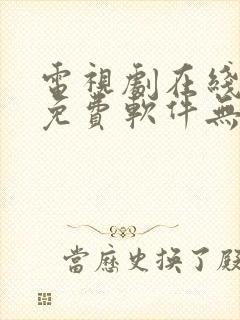 電視劇在綫
免費軟件無
當歷史換了殿